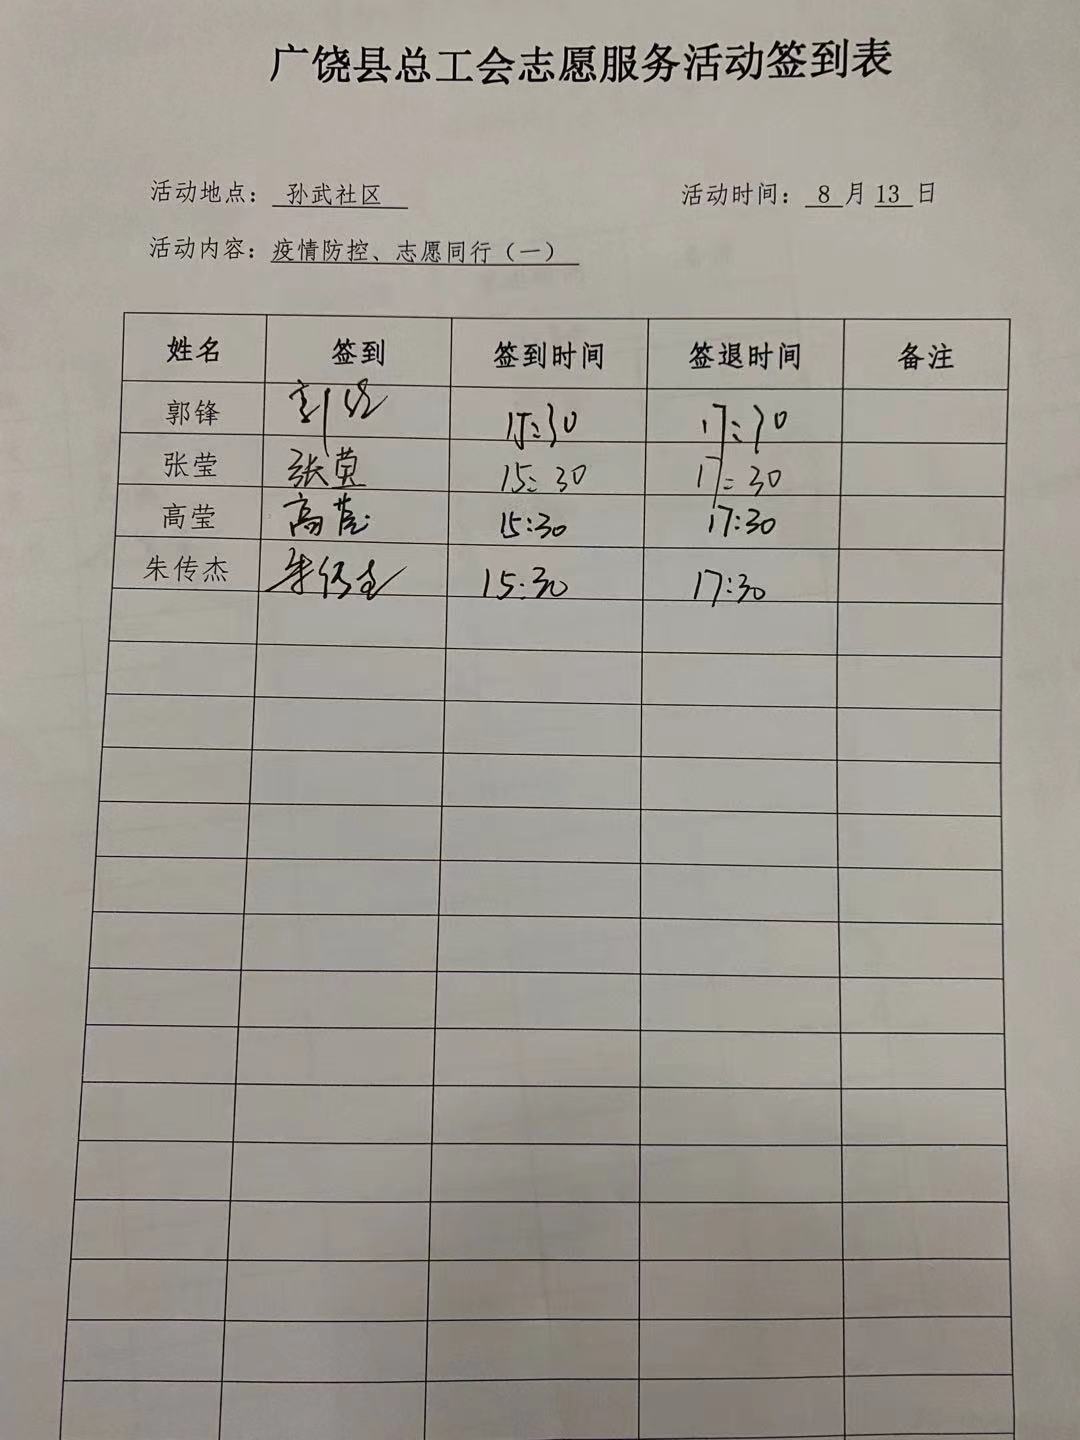 广饶县总工会志愿服务活动签到表
活动地点： 孙武社区 活动时间： 8 月 13 日
活动内容：疫情防控、志愿同行（一）
姓名 签到 签到时间 签退时间 备注
郭锋 15:30 17:30
张莹 张莹 15:30 17:30
高莹 高莹 15:30 17:30
朱传杰 朱传杰 15:30 17:30